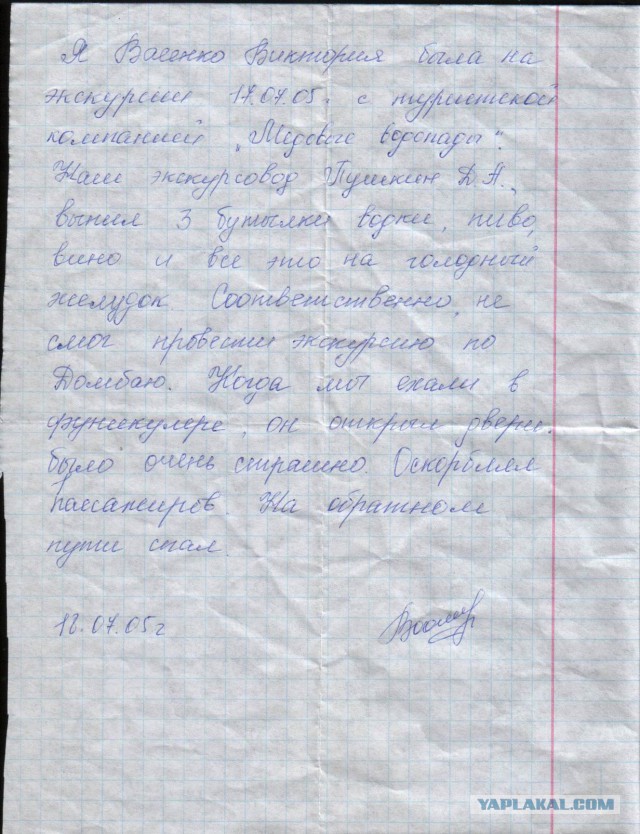 Я Васенко Виктория была на
экскурсии 17.07.05г с туристской
компанией „Медовые водопады".
Наш экскурсовод Пушкин Д.А.,
выпил 3 бутылки водки, пиво,
вино и все это на голодный
желудок. Соответственно, не
смог провести экскурсию по
Домбаю. Когда мы ехали в
фуникулере, он открыл двери.
было очень страшно. Оскорблял
пассажиров. На обратном
пути спал.
18.07.05г
YAPLAKAL.COM